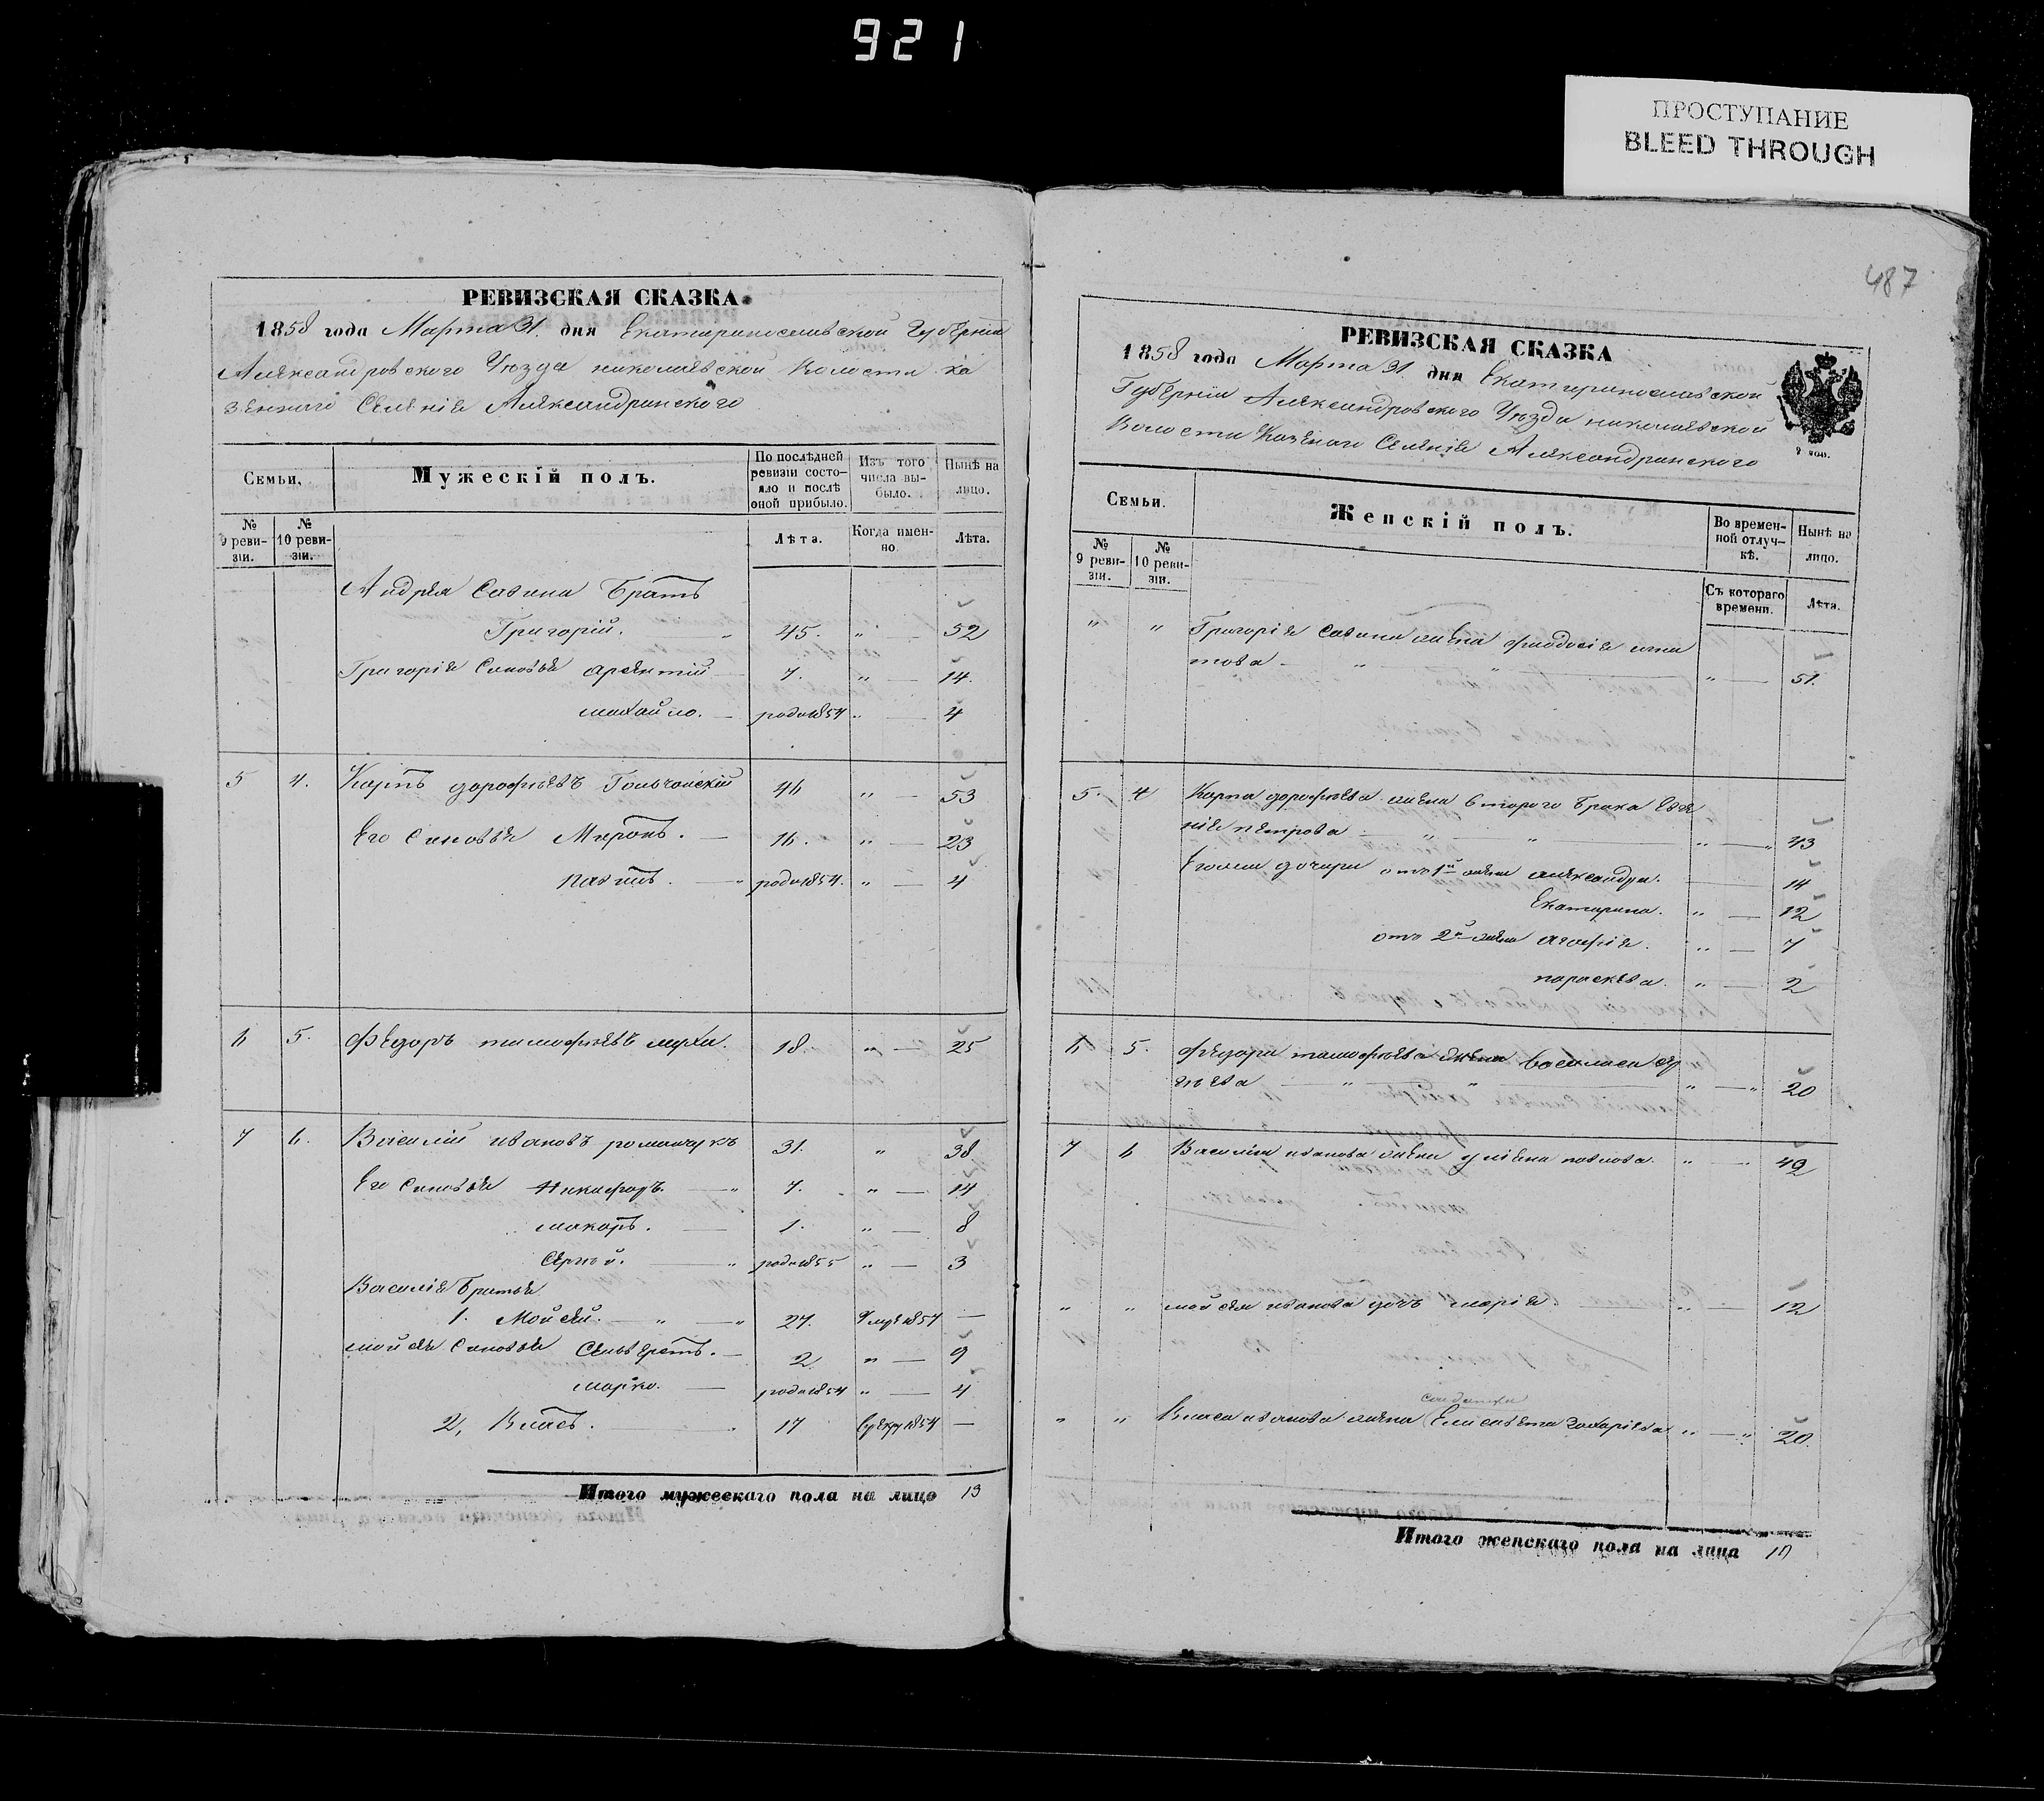 921
ПРОСТУПАНИЕ
BLEED THROUGH
РЕВИЗСКАЯ СКАЗКА.
1858 года Марта 31. дня Екатеринославской Губернии
Александровского Уѣзда николаевской Волости ка
зенного Селеніе Александринского
Семьи.
Мужескій полъ.
По послѣдней ревизіи состояло и послѣ оной прибыло.
Изъ того числа выбыло.
Нынѣ на лицо.
№ 9 ревизіи.
№ 10 ревизіи.
Лѣта.
Когда именно.
Лѣта.
Андрея Савина Братъ
Григорій. " 45. " — 52
Григорія Сыновья Арсентий — 7. " — 14.
михайло. — родил1854 " — 4
5 4. Карпъ дорофѣевъ 46 " — 53
Его Сыновья Миронъ. — 16. " — 23
павилъ. — " родил1854. " — 4
6 5. Федоръ тимофѣевъ муха. 18. " — 25
7 6. Василий ивановъ романчукъ 31. " 38
Его Сыновья Никифоръ. — " 7. " — 14
макаръ. — 1. " — 8
Сергѣй. — " родил1855 " — 3
Василія Братья
1. Мойсей. — " — " 27. Умре1857 —
мойсея Сыновья — 2 " — 9
марко. — родил1854 " — 4
2, Власъ. — 17 1854 —
Итого мужескаго пола на лицо 13
487
РЕВИЗСКАЯ СКАЗКА
1858 года Марта 31. дня Екатеринославской
Губерніи Александровского Уѣзда николаевской
Волости Казеного Селеніе Александринского
Семьи.
Женскій полъ.
Во временной отлучкѣ.
Нынѣ на лицо.
№ 9 ревизіи.
№ 10 ревизіи.
Съ котораго времени.
Лѣта.
" " Григорія Савина жена феодосія игна
това — " " " — 51.
5. 4 Карпа дорофѣева жена второго брака Евге
нія петрова — " — " — " — " 43
Егоже дочери отъ 1й жены александра. — 14
Екатерина. " — 12
отъ 2й жены агафія. " — 7
параскева. " — 2
6 5. Федора тимофѣева жена василиса
— " — " — " — " 20
7 6 Василія иванова жена уліяна павлова. " — " 42
" " мойсея иванова дочь марія. — " — 12
солдатка
" " Власа иванова жена Елисавета захаріева " — " 20.
Итого женскаго пола на лица 10